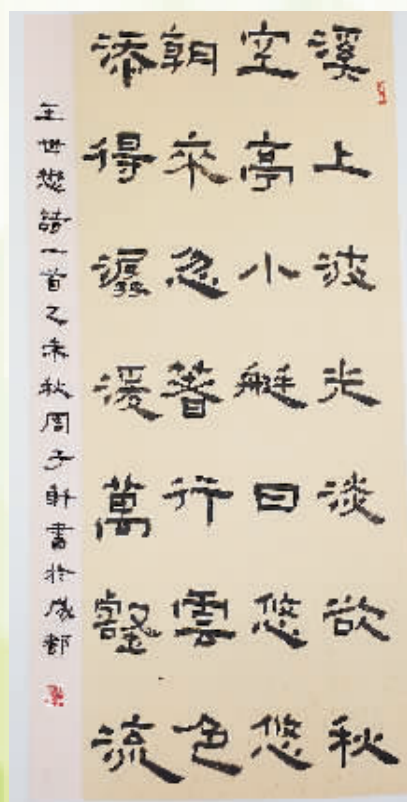 溪上波光淡欲秋
空亭小艇日悠悠
朝來忽著行雲色
添得潺湲萬壑流
王世懋詩一首乙未秋周子軒書於成都